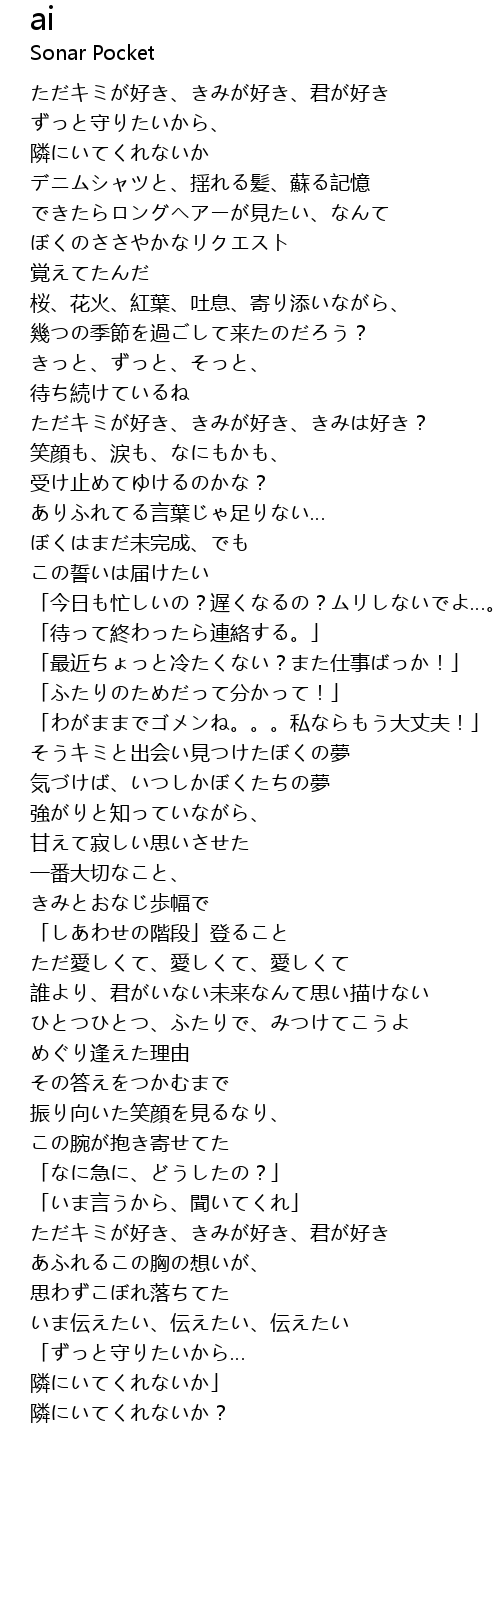 ai
Sonar Pocket
ただキミが好き、きみが好き、君が好き
ずっと守りたいから、
隣にいてくれないか
デニムシャツと、揺れる髪、蘇る記憶
できたらロングヘアーが見たい、なんて
ぼくのささやかなリクエスト
覚えてたんだ
桜、花火、紅葉、吐息、寄り添いながら、
幾つの季節を過ごして来たのだろう？
きっと、ずっと、そっと、
待ち続けているね
ただキミが好き、きみが好き、きみは好き？
笑顔も、涙も、なにもかも、
受け止めてゆけるのかな？
ありふれてる言葉じゃ足りない…
ぼくはまだ未完成、でも
この誓いは届けたい
「今日も忙しいの？遅くなるの？ムリしないでよ…。
「待って終わったら連絡する。」
「最近ちょっと冷たくない？また仕事ばっか！」
「ふたりのためだって分かって！」
「わがままでゴメンね。。。私ならもう大丈夫！」
そうキミと出会い見つけたぼくの夢
気づけば、いつしかぼくたちの夢
強がりと知っていながら、
甘えて寂しい思いさせた
一番大切なこと、
きみとおなじ歩幅で
「しあわせの階段」登ること
ただ愛しくて、愛しくて、愛しくて
誰より、君がいない未来なんて思い描けない
ひとつひとつ、ふたりで、みつけてこうよ
めぐり逢えた理由
その答えをつかむまで
振り向いた笑顔を見るなり、
この腕が抱き寄せてた
「なに急に、どうしたの？」
「いま言うから、聞いてくれ」
ただキミが好き、きみが好き、君が好き
あふれるこの胸の想いが、
思わずこぼれ落ちてた
いま伝えたい、伝えたい、伝えたい
「ずっと守りたいから…
隣にいてくれないか」
隣にいてくれないか？